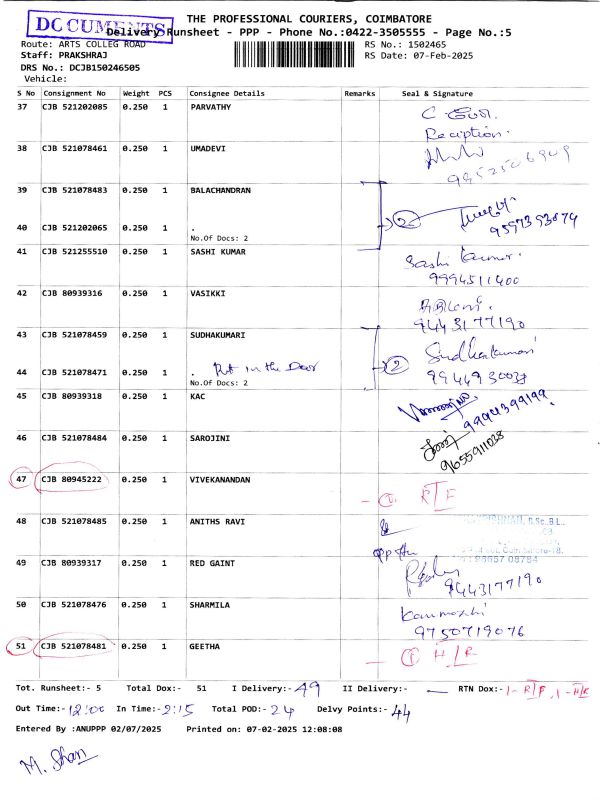 DOCUMENTS
THE PROFESSIONAL COURIERS, COIMBATORE
Delivery Runsheet - PPP - Phone No.:0422-3505555 - Page No.:5
Route: ARTS COLLEG ROAD RS No.: 1502465
Staff: PRAKSHRAJ RS Date: 07-Feb-2025
DRS No.: DCJB150246505
Vehicle:
S No Consignment No Weight PCS Consignee Details Remarks Seal & Signature
37 CJB 521202085 0.250 1 PARVATHY
Reciption.
38 CJB 521078461 0.250 1 UMADEVI
9952506909
39 CJB 521078483 0.250 1 BALACHANDRAN
2
40 CJB 521202065 0.250 1 .
9597393074
No.Of Docs: 2
41 CJB 521255510 0.250 1 SASHI KUMAR Sashi Kumar.
9994511400
42 CJB 80939316 0.250 1 VASIKKI
9443177190
43 CJB 521078459 0.250 1 SUDHAKUMARI Sudhakumari
2
44 CJB 521078471 0.250 1 . Put in the Door
No.Of Docs: 2
45 CJB 80939318 0.250 1 KAC
9994399199
46 CJB 521078484 0.250 1 SAROJINI
9655911038
47 CJB 80945222 0.250 1 VIVEKANANDAN
R T F
48 CJB 521078485 0.250 1 ANITHS RAVI
49 CJB 80939317 0.250 1 RED GAINT
9443177190
50 CJB 521078476 0.250 1 SHARMILA Kanmozhi
9750719076
51 CJB 521078481 0.250 1 GEETHA
Tot. Runsheet:- 5 Total Dox:- 51 I Delivery:- 49 II Delivery:- — RTN Dox:- 1-RTF, 1-H/R
Out Time:- 12:00 In Time:- 2:15 Total POD:- 24 Delvy Points:- 44
Entered By :ANUPPP 02/07/2025 Printed on: 07-02-2025 12:08:08